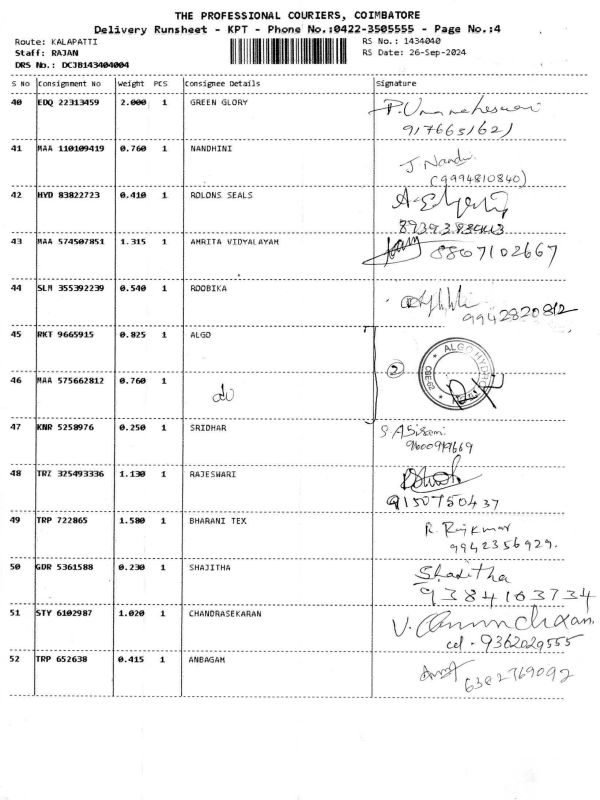 THE PROFESSIONAL COURIERS, COIMBATORE
Delivery Runsheet - KPT - Phone No.:0422-3505555 - Page No.:4
Route: KALAPATTI RS No.: 1434040
Staff: RAJAN RS Date: 26-Sep-2024
DRS No.: DCJB143404004
S No Consignment No Weight PCS Consignee Details Signature
40 EDQ 22313459 2.000 1 GREEN GLORY P. Umamaheswari
9176651621
41 MAA 110109419 0.760 1 NANDHINI J Nandu
(9994810840)
42 HYD 83822723 0.410 1 ROLONS SEALS
43 MAA 574507851 1.315 1 AMRITA VIDYALAYAM 8867102667
44 SLM 355392239 0.540 1 ROOBIKA
9942820812
45 RKT 9665915 0.825 1 ALGO
2 ALGO HYDRO CBE-62
46 MAA 575662812 0.760 1 do
47 KNR 5258976 0.250 1 SRIDHAR
9600919669
48 TRZ 325493336 1.130 1 RAJESWARI
9150750437
49 TRP 722865 1.580 1 BHARANI TEX R. Rajkumar
9942356929.
50 GDR 5361588 0.230 1 SHAJITHA Shajitha
9384163734
51 STY 6102987 1.020 1 CHANDRASEKARAN
cel - 9362029555
52 TRP 652638 0.415 1 ANBAGAM
6382769092